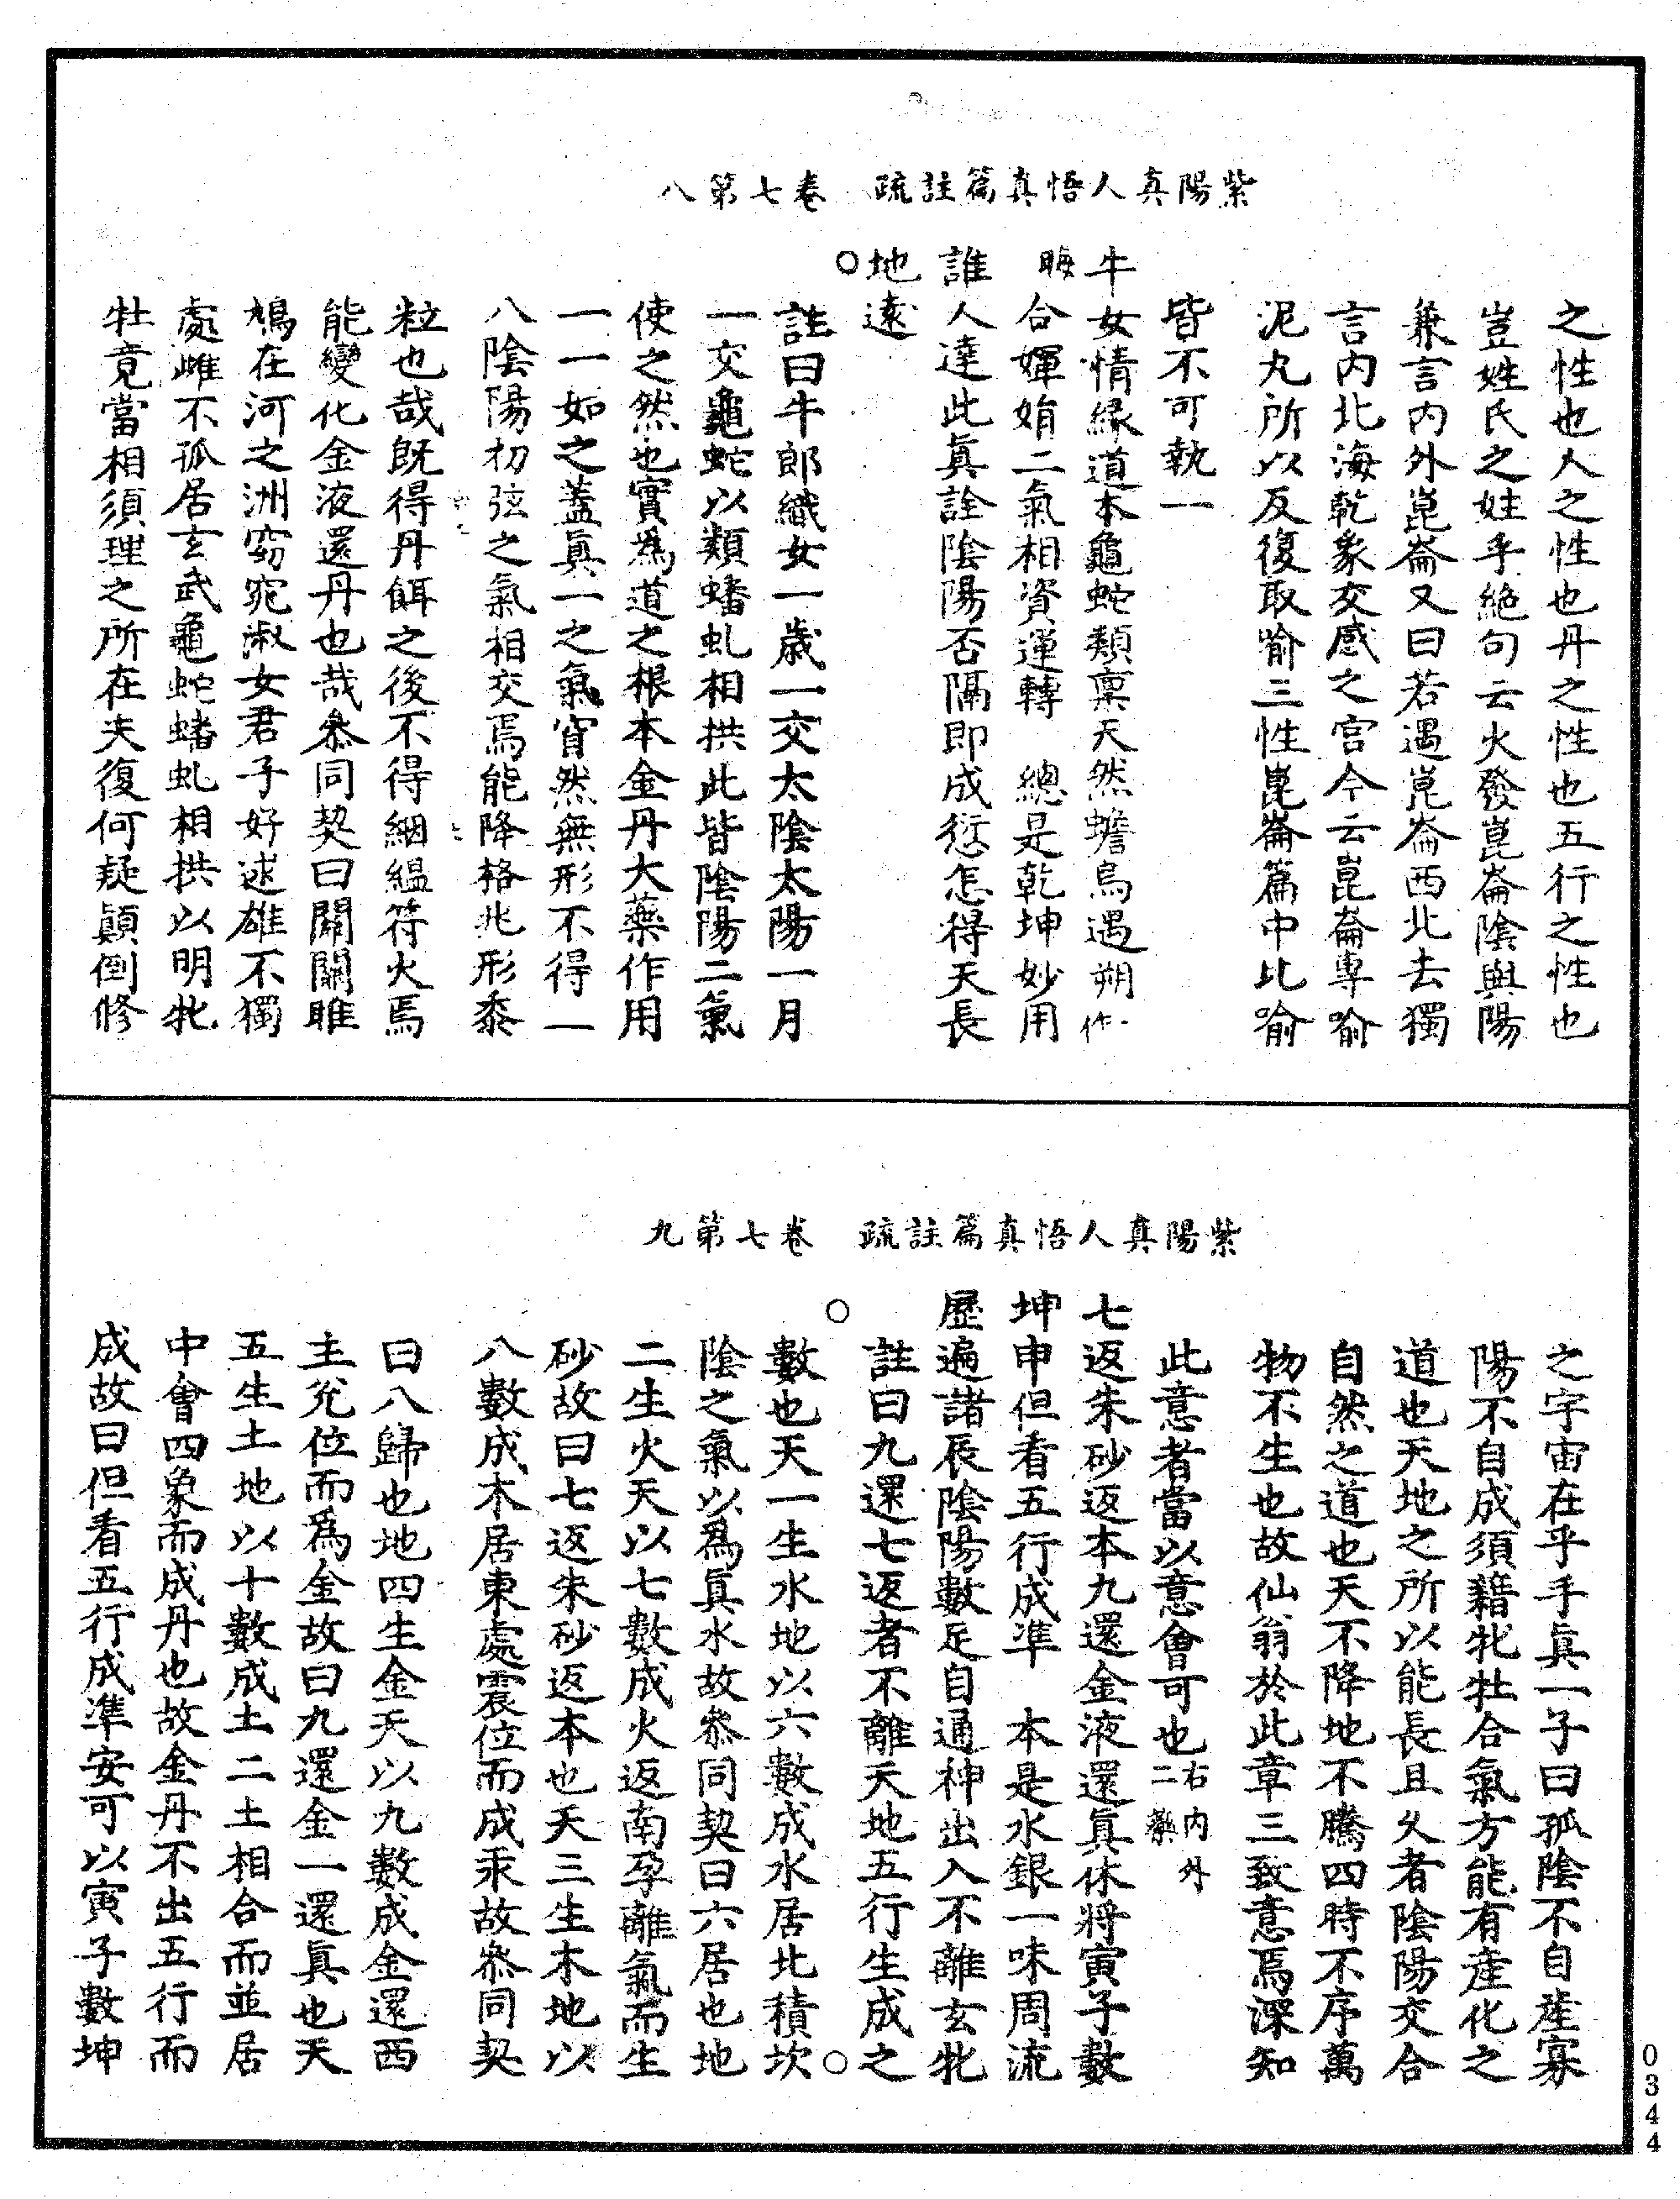 紫陽真人悟真篇註疏　卷七第八
之性也人之性也丹之性也五行之性也
豈姓氏之姓乎絶句云火發崑崙陰與陽
兼言内外崑崙又曰若遇崑崙西北去獨
言内北海乾象交感之宮今云崑崙專喻
泥丸所以反復取喻三性崑崙篇中比喻
皆不可執一
牛女情緣道本龜蛇類禀天然蟾烏遇朔一作
晦合嬋娟二氣相資運轉　總是乾坤妙用
誰人達此真詮陰陽否隔即成愆怎得天長
地遠
○
註曰牛郎織女一歲一交太陰太陽一月
一交龜蛇以類蟠虬相拱此皆陰陽二氣
使之然也實爲道之根本金丹大藥作用
一一如之蓋真一之氣窅然無形不得一
八陰陽初弦之氣相交焉能降格兆形黍
粒也哉既得丹餌之後不得絪緼符火焉
能變化金液還丹也哉叅同契曰關關雎
鳩在河之洲窈窕淑女君子好逑雄不獨
處雌不孤居玄武龜蛇蟠虬相拱以明牝
牡竟當相須理之所在夫復何疑顛倒修
紫陽真人悟真篇註疏　卷七第九
之宇宙在乎手真一子曰孤陰不自産寡
陽不自成須藉牝牡合氣方能有産化之
道也天地之所以能長且久者陰陽交合
自然之道也天不降地不騰四時不序萬
物不生也故仙翁於此章三致意焉深知
此意者當以意會可也右内外二藥
七返朱砂返本九還金液還真休將寅子數
坤申但看五行成準　本是水銀一味周流
歷遍諸辰陰陽數足自通神出入不離玄牝
○
註曰九還七返者不離天地五行生成之
數也天一生水地以六數成水居北積坎○
陰之氣以爲真水故叅同契曰六居也地
二生火天以七數成火返南孕離氣而生
砂故曰七返朱砂返本也天三生木地以
八數成木居東處震位而成汞故叅同契
曰八歸也地四生金天以九數成金還西
主兊位而爲金故曰九還金一還真也天
五生土地以十數成土二土相合而並居
中會四象而成丹也故金丹不出五行而
成故曰但看五行成準安可以寅子數坤
0344